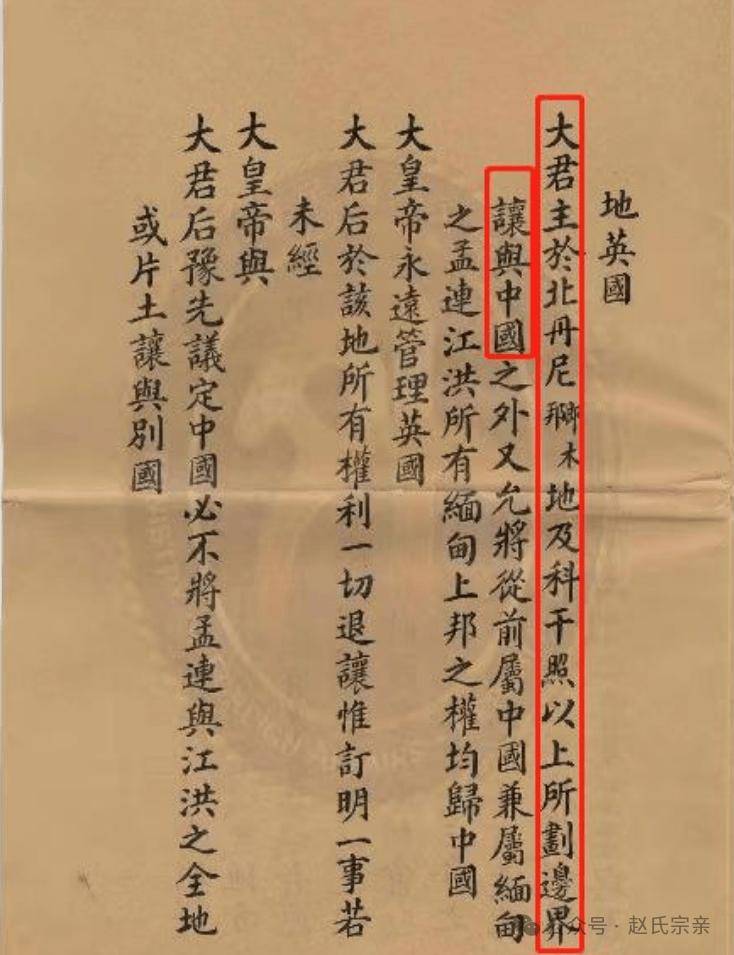 地英國
大君主於北丹尼即木邦地及科干照以上所劃邊界
讓與中國之外又允將從前屬中國兼屬緬甸
之孟連江洪所有緬甸上邦之權均歸中國
大皇帝永遠管理英國
大君后於該地所有權利一切退讓惟訂明一事若
未經
大皇帝與
大君后豫先議定中國必不將孟連與江洪之全地
或片土讓與別國
众号 · 赵氏宗亲